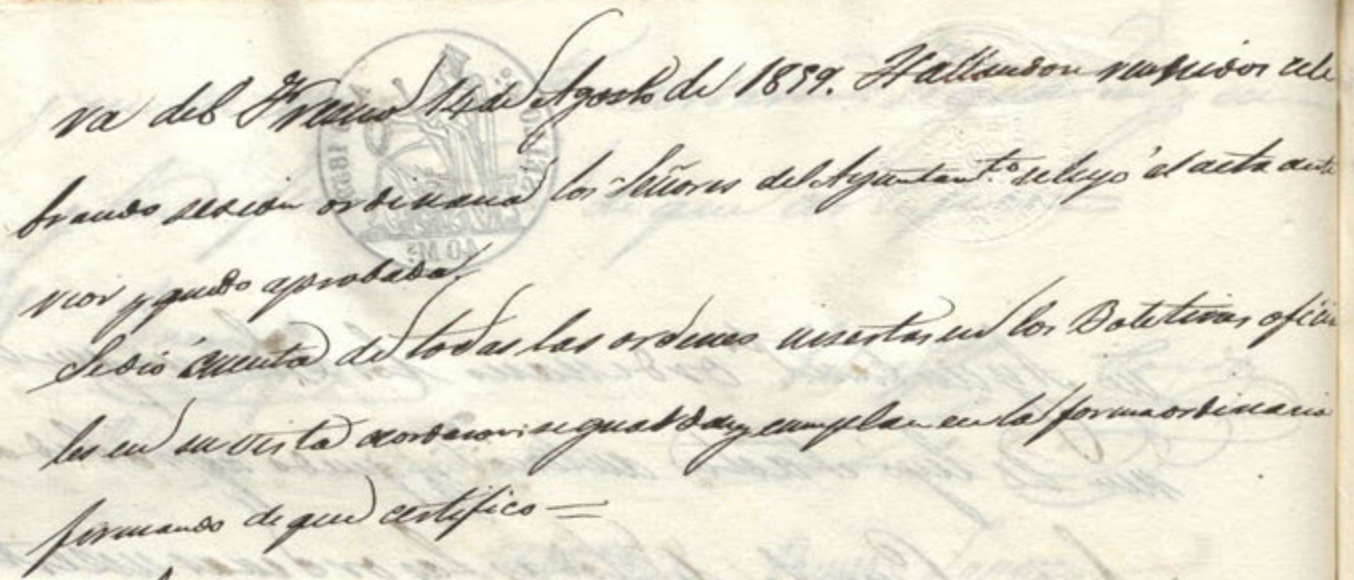 va del Fresno 14 de Agosto de 1859. Hallandose reunidos cele
brando sesion ordinaria los Señores del Ayuntamto. se leyó el acta ante
rior y quedo aprobada.
Se dió cuenta de todas las ordenes insertas en los Boletines oficia
les en su vista acordaron se guarden y cumplan en la forma ordinaria
firmando de que certifico =
40 Ms